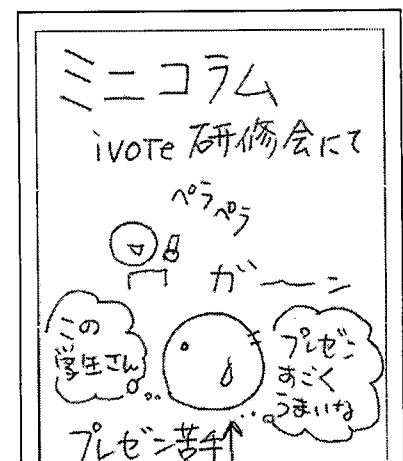 ミニコラム
ivote 研修会にて
ペラペラ
ガーン
この
学生さん
プレゼン
すごく
うまいな
プレゼン苦手↑